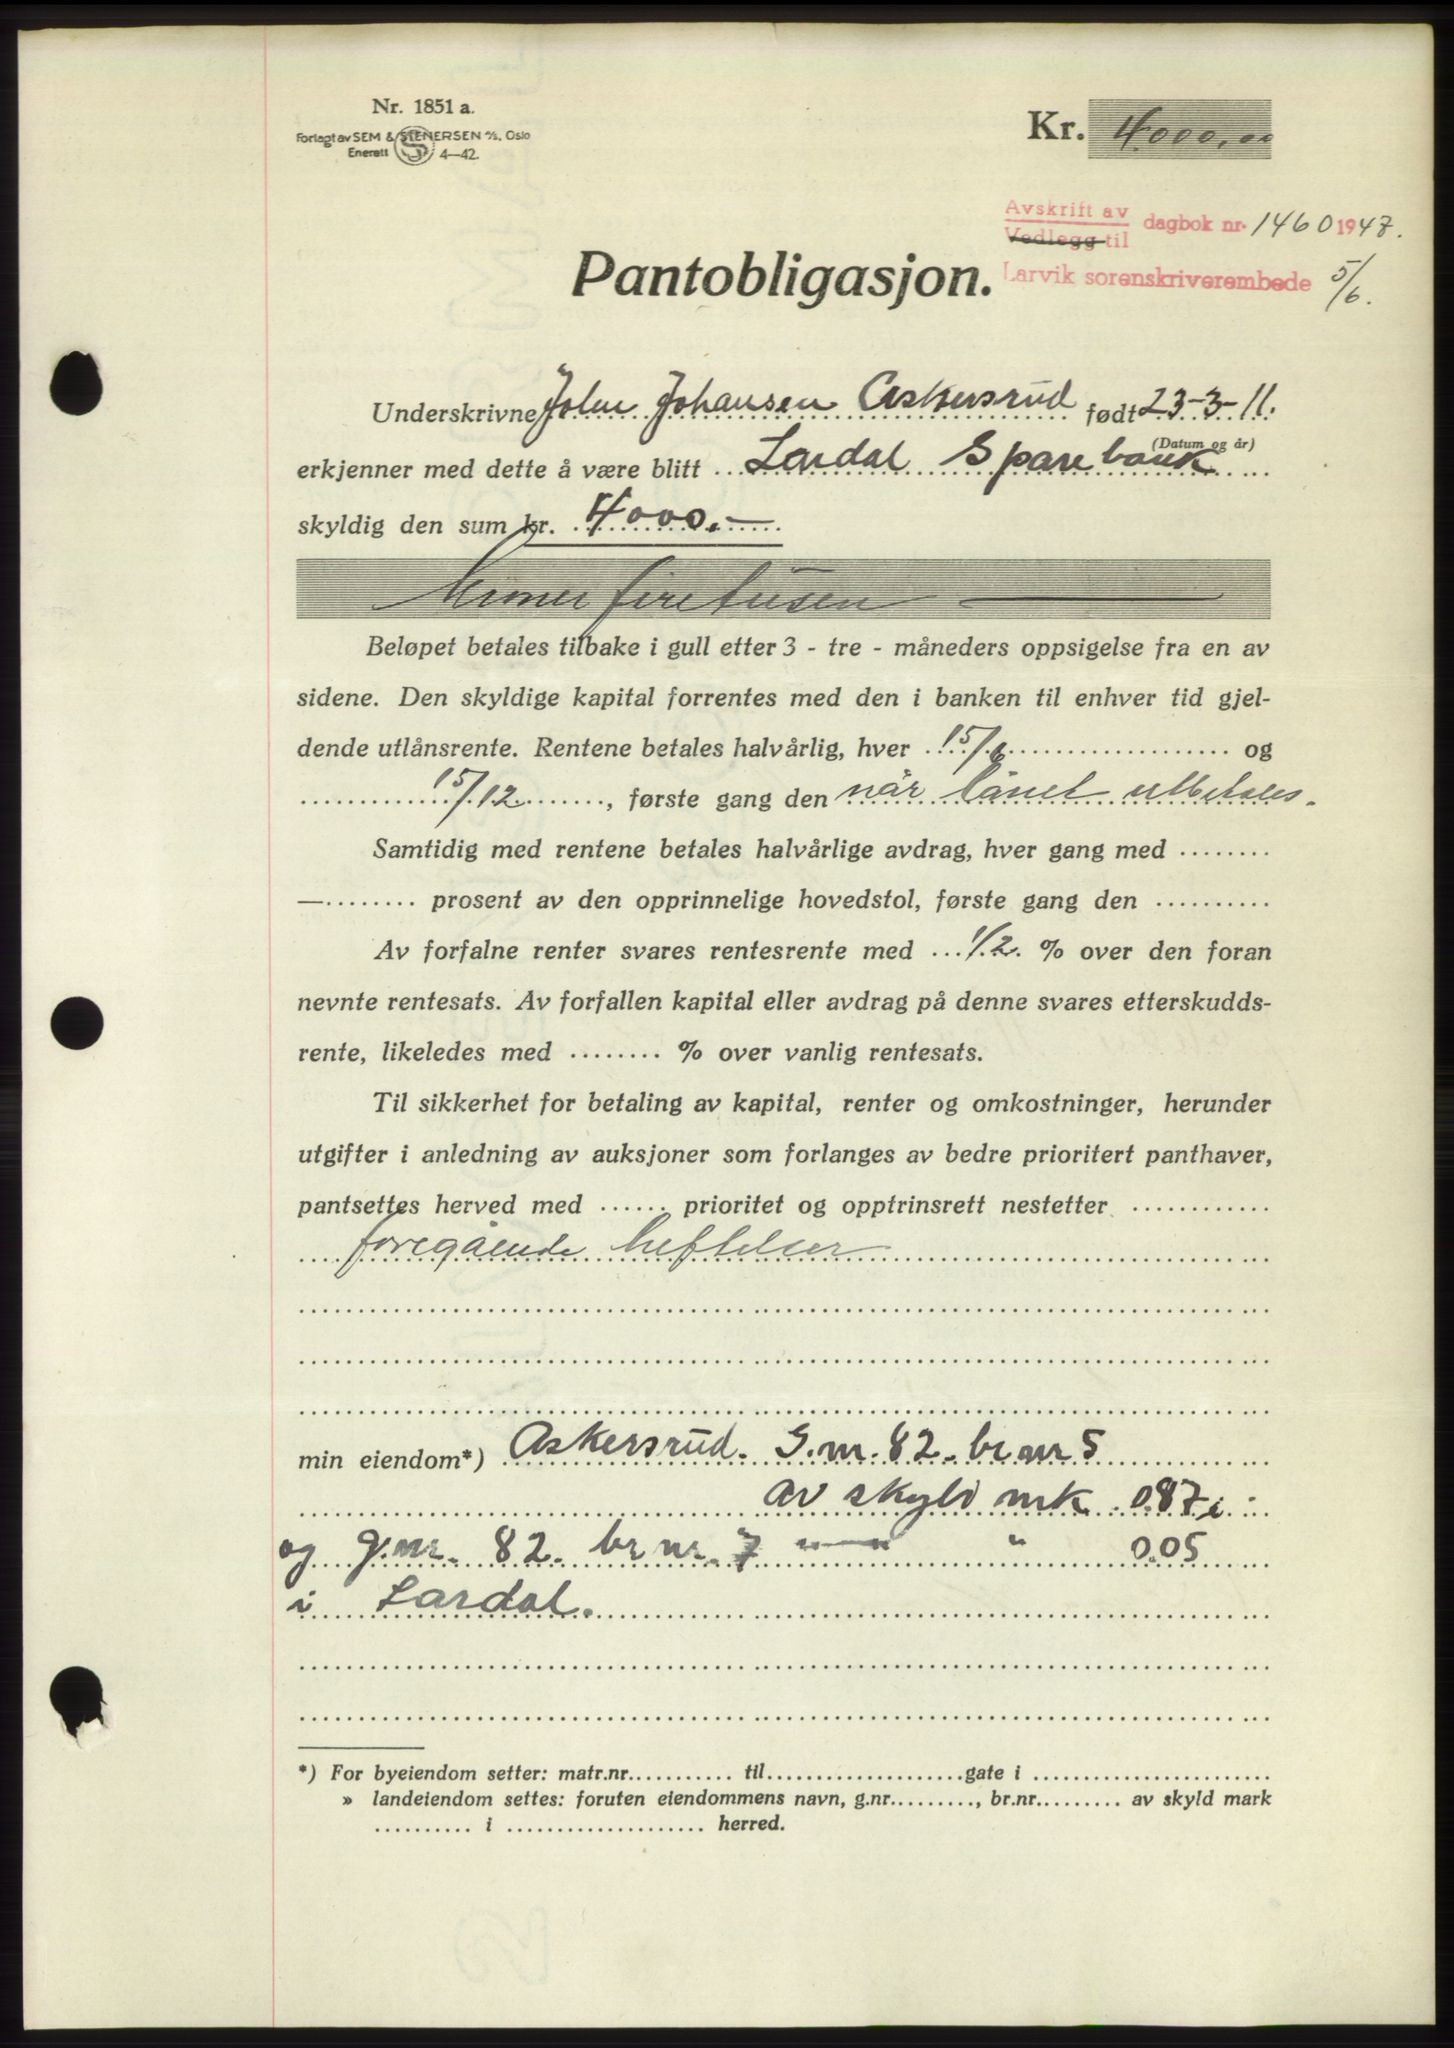 Nr. 1851 a.
Forlagt av SEM & STENERSEN A/S, Oslo
Enerett S 4—42.
Kr. 4000,00
Avskrift av
Vedlegg til dagbok nr. 1460 1947.
Larvik sorenskriverembede 5/6.
Pantobligasjon.
Underskrivne John Johansen Askersrud født 23-3-11.
(Datum og år)
erkjenner med dette å være blitt Lardal Sparebank
skyldig den sum kr. 4000.—
Kroner firetusen —
Beløpet betales tilbake i gull etter 3 - tre - måneders oppsigelse fra en av
sidene. Den skyldige kapital forrentes med den i banken til enhver tid gjel-
dende utlånsrente. Rentene betales halvårlig, hver 15/6 og
15/12, første gang den når lånet utbetales.
Samtidig med rentene betales halvårlige avdrag, hver gang med ........
—........ prosent av den opprinnelige hovedstol, første gang den ..........
Av forfalne renter svares rentesrente med 1/2 % over den foran
nevnte rentesats. Av forfallen kapital eller avdrag på denne svares etterskudds-
rente, likeledes med ........ % over vanlig rentesats.
Til sikkerhet for betaling av kapital, renter og omkostninger, herunder
utgifter i anledning av auksjoner som forlanges av bedre prioritert panthaver,
pantsettes herved med ...... prioritet og opptrinsrett nestetter ............
foregående heftelser
min eiendom*) Askersrud. G.nr. 82. br nr 5
av skyld mrk 0.87 i
og g.nr. 82. br nr. 7 —"— " 0.05
i Lardal.
*) For byeiendom setter: matr.nr........... til.....................gate i ..........................
» landeiendom settes: foruten eiendommens navn, g.nr........., br.nr......... av skyld mark
.......... i ..................... herred.